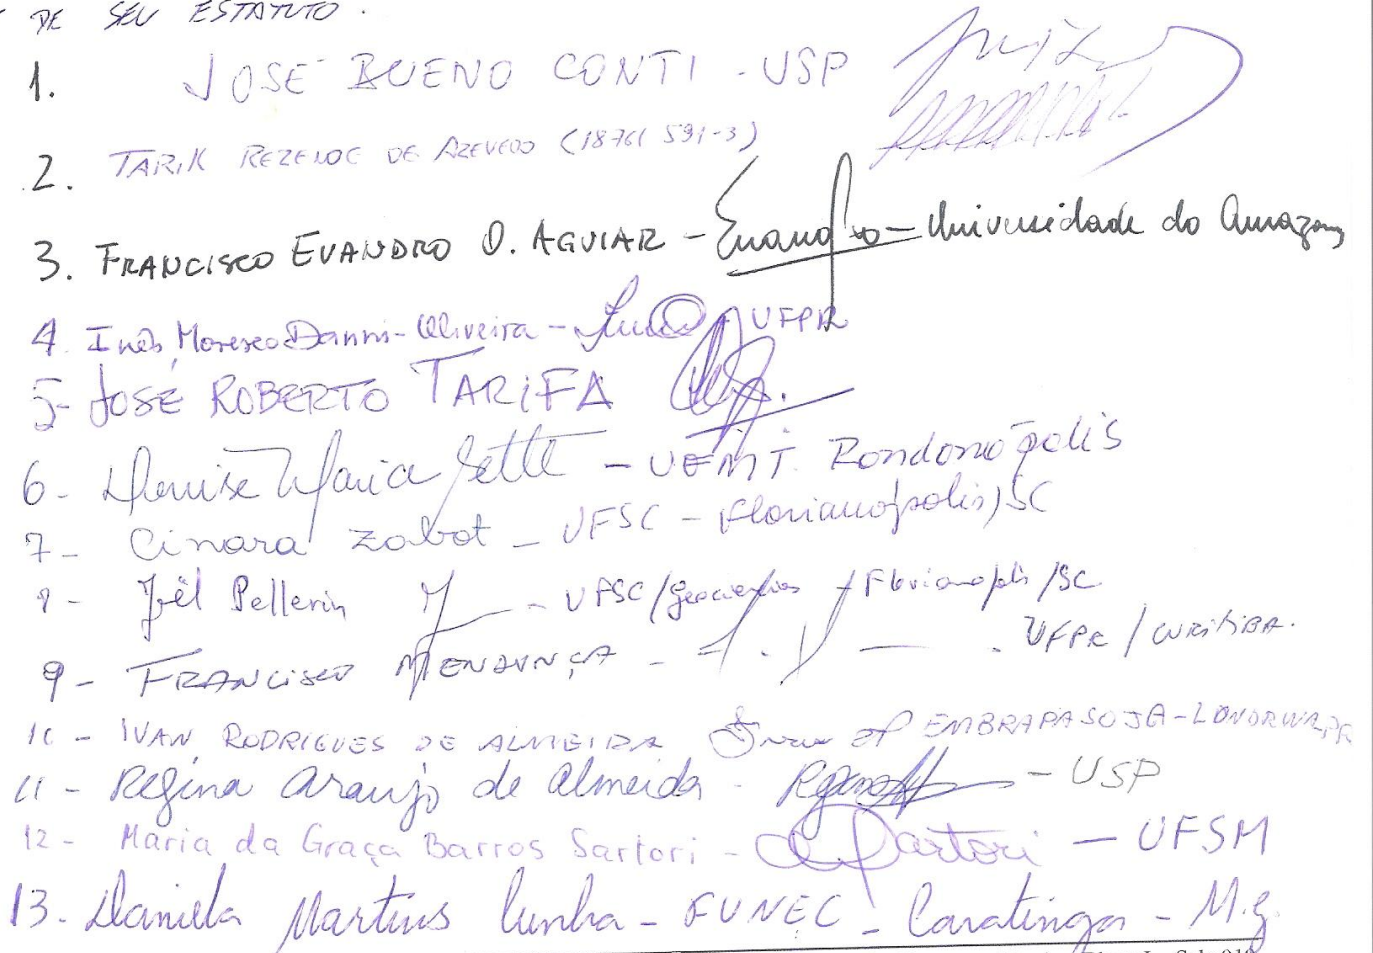 DE SEU ESTATUTO.
1. JOSÉ BUENO CONTI - USP
2. TARIK REZENDE DE AZEVEDO (18761 591-3)
3. FRANCISCO EVANDRO O. AGUIAR - Evandro - Universidade do Amazonas
4. Inês Moresco Danni-Oliveira - UFPR
5- JOSÉ ROBERTO TARIFA
6- Denise Maria Sette - UFMT. Rondonópolis
7- Cinara Zabot - UFSC - Florianópolis/SC
8- Joël Pellerin - UFSC/Geociências - Florianópolis/SC
9- FRANCISCO MENDONÇA - . UFPR/CURITIBA.
10- IVAN RODRIGUES DE ALMEIDA EMBRAPA SOJA-LONDRINA, PR
11- Regina Araujo de Almeida - USP
12- Maria da Graça Barros Sartori - Sartori - UFSM
13- Daniela Martins Cunha - FUNEC - Caratinga - M.g.